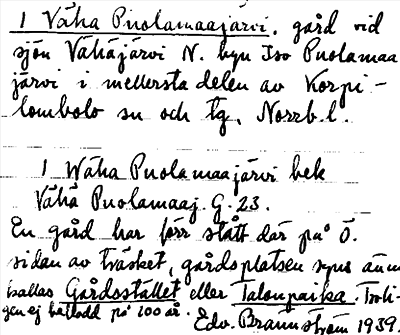 1 Väha Puolamaajärvi, gård vid
sjön Vähäjärvi N. byn Iso Puolamaa
järvi i mellersta delen av Korpi-
lombolo sn och tg, Norrb. l.
1 Wäha Puolamaajärvi bek
Vähä Puolamaaj. G. 23.
En gård har förr stått där på Ö.
sidan av träsket, gårdsplatsen syns ännu
kallas Gårdsstället eller Talonpaika. Troli-
gen ej bebodd på 200 år.
Edv. Brännström 1939.